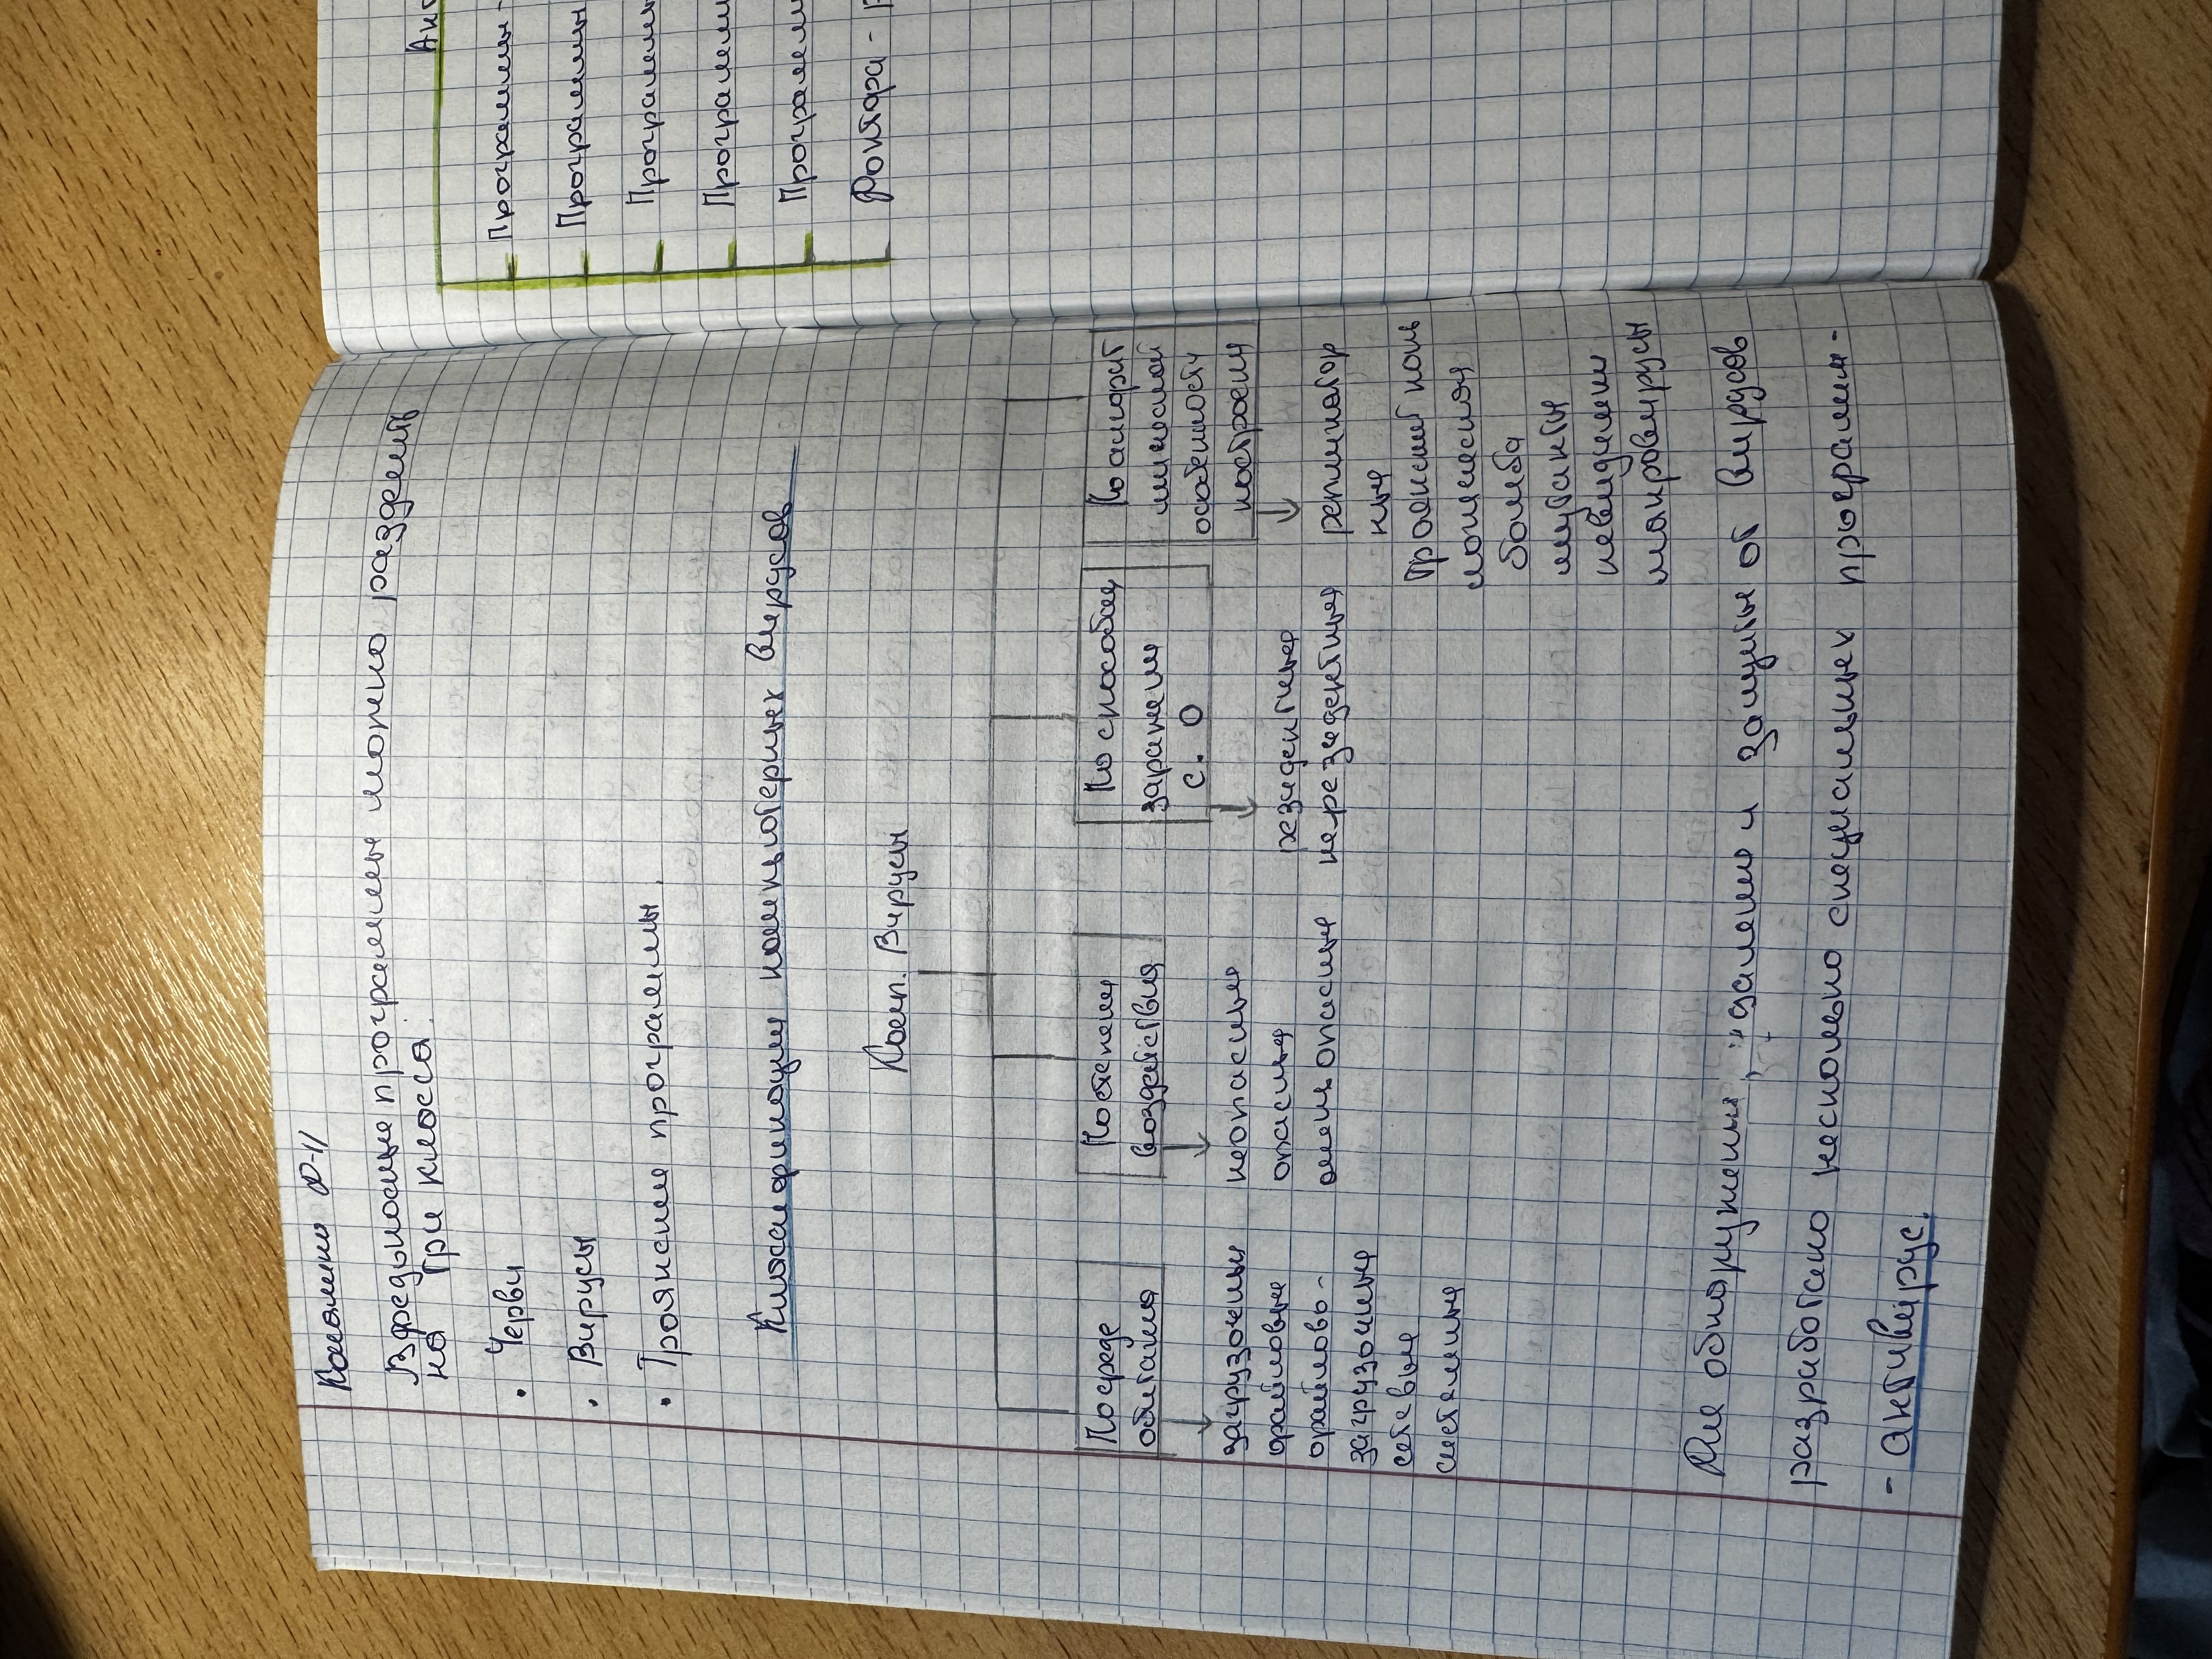 Вредоносные программы можно разделить
на три класса:
• Черви
• Вирусы
• Троянские программы.
Классификация компьютерных вирусов
Комп. Вирусы
По среде
обитания
загрузочные
файловые
файлово-
загрузочные
сетевые
системные
По степени
воздействия
неопасные
опасные
очень опасные
По способам
заражения
С. О
резидентные
нерезидентные
По алгорит
мической
особенности
построения
репликатор
ные
троянский конь
логическая
бомба
мутанты
невидимки
макровирусы
Для обнаружения, удаления и защиты от вирусов
разработано несколько специальных программ-
- антивирус.
Программы-
Программы
Программы
Программы
Программы